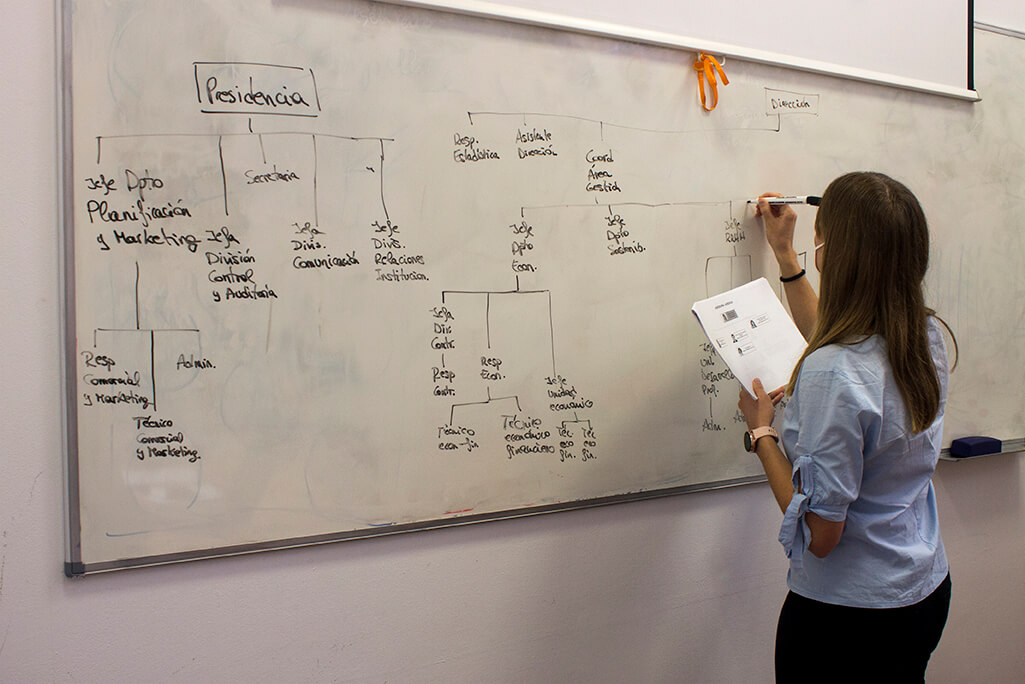 Presidencia
Jefe Dpto
Planificación
y Marketing
Jefa
División
Control
y Auditoría
Secretaria
Jefa
Divis.
Comunicación
Jefe
Divis.
Relaciones
Institucion.
Resp
Comercial
y Marketing
Admin.
Técnico
Comercial
y Marketing.
Dirección
Resp.
Estadística
Asistente
Dirección
Coord
Área
Gestión
Jefe
Dpto
Econ.
Jefe
Dpto
Sostenib.
Jefe
RRHH
Jefa
Div.
Contr.
Resp
Contr.
Resp
Econ.
Jefe
Unidad
económico
Técnico
econ-fin
Técnico
económico
financiero
Téc
eco
fin.
Téc
eco
fin.
Jefe
Uni.
Desarrollo
Adm.